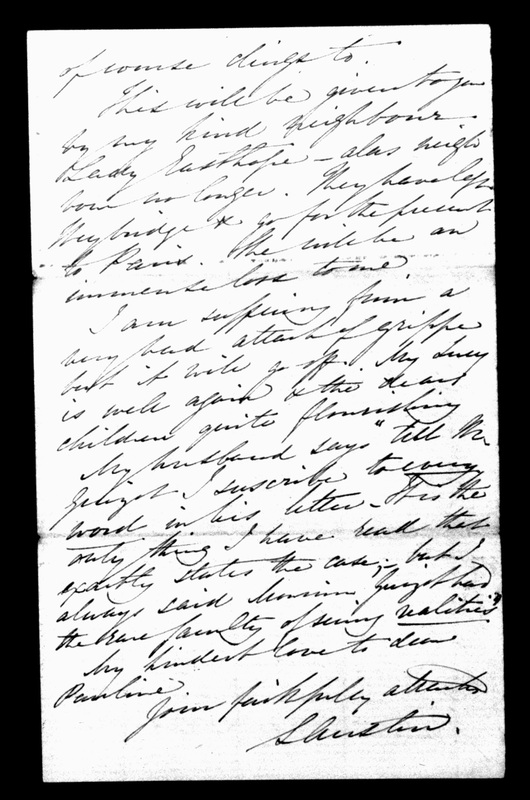 of course clings to.
This will be given to you
by my kind neighbour
Lady Easthope – alas neigh
bour no longer. They have left
Weybridge & go for the present
to Paris. She will be an
immense loss to me
I am suffering from a
very bad attack of grippe
but it will go off. My Lucy
is well again & the dear
children quite flourishing
My husband says "tell Mr
Guizot I suscribe to every
word in his letter – It is the
only thing I have read that
exactly states the case; but I
always said Monsieur Guizot had
the rare faculty of seeing realities"
My kindest love to dear
Pauline
Your faithfully attached
S Austin.